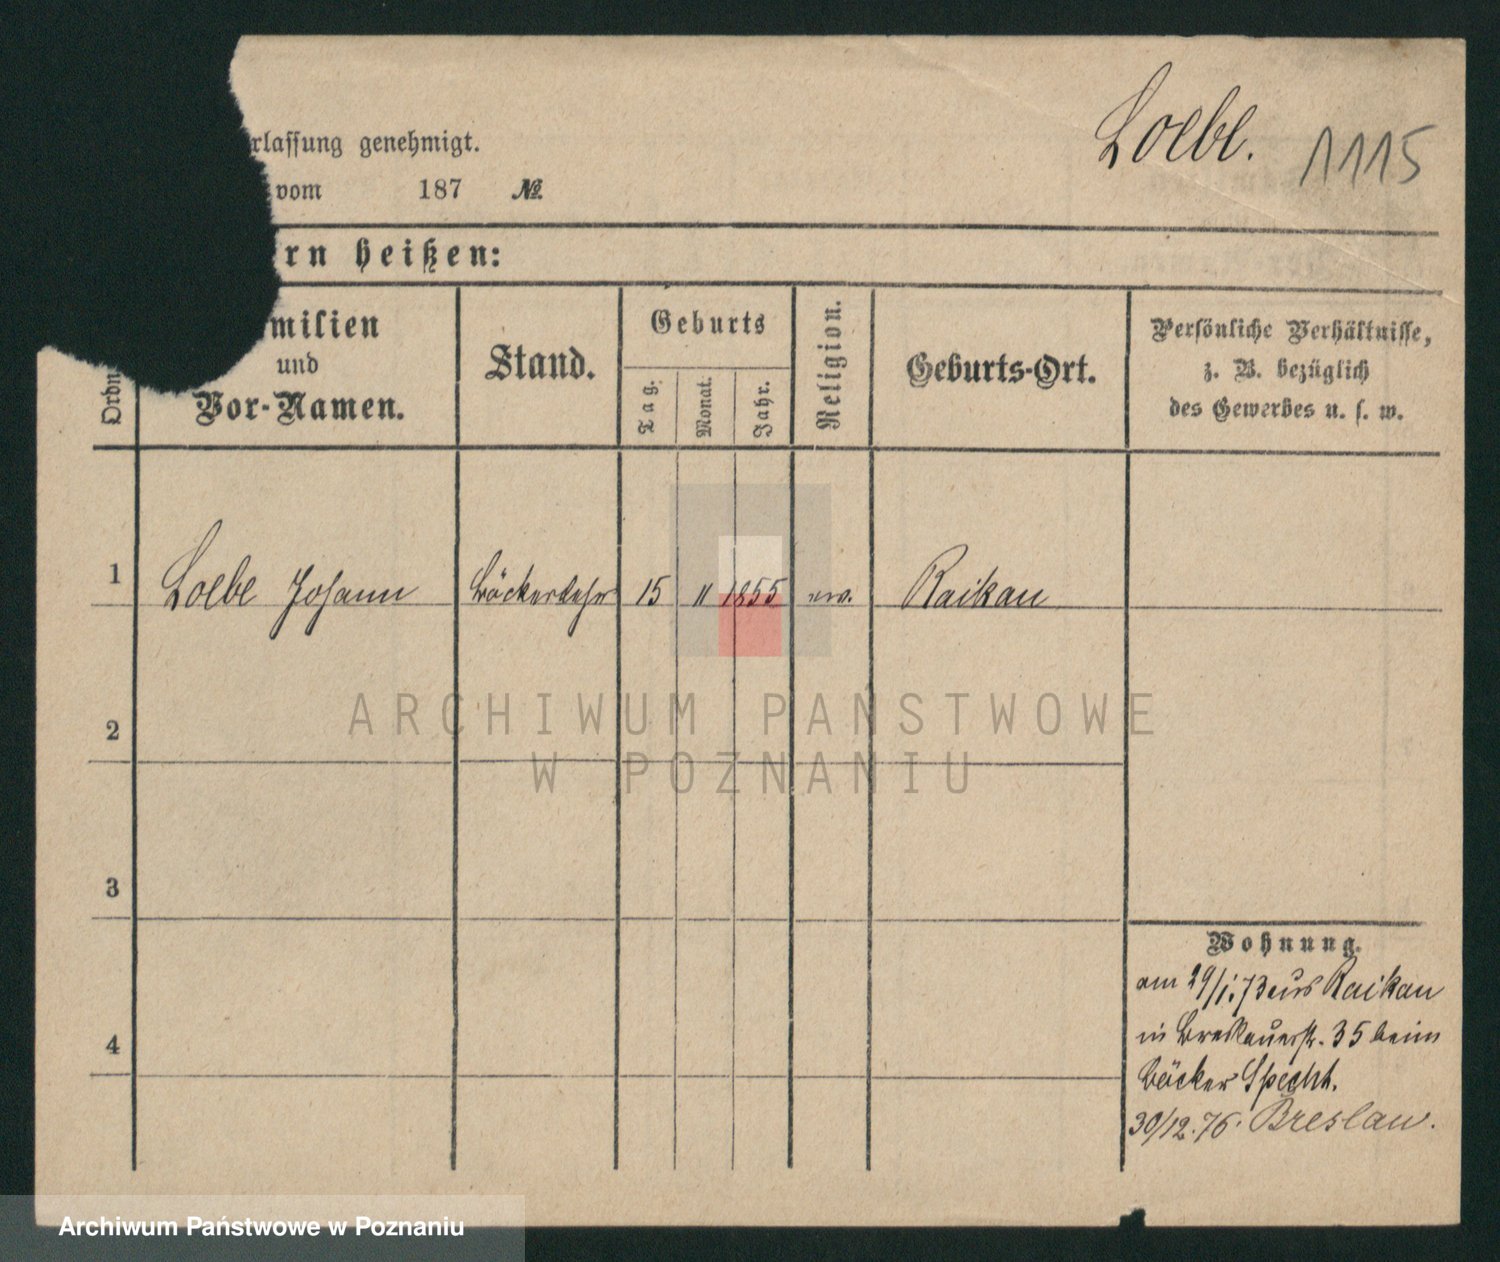 Loebe.
1115
rlassung genehmigt.
vom 187 №
rn heißen:
Ordn
milien
und
Vor-Namen.
Stand.
Geburts
Tag.
Monat.
Jahr.
Religion.
Geburts-Ort.
Persönliche Verhältnisse,
z. B. bezüglich
des Gewerbes u. s. w.
1 Loebe Johann Bäckerlehr 15 11 1855 ev. Raikau
2
3
4
Wohnung.
am 29/1.73 aus Raikau
in Breslauerstr. 35 beim
Bäcker Specht.
30/12.76. Breslau.
ARCHIWUM PAŃSTWOWE
W POZNANIU
Archiwum Państwowe w Poznaniu